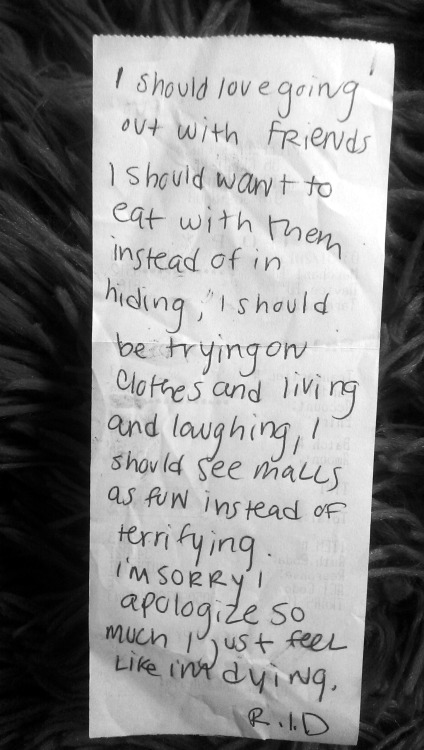 I should love going
out with friends
I should want to
eat with them
instead of in
hiding," I should
be trying on
clothes and living
and laughing, I
should see malls
as fun instead of
terrifying.
I'm sorry I
apologize so
much I just feel
like im dying.
R.I.D